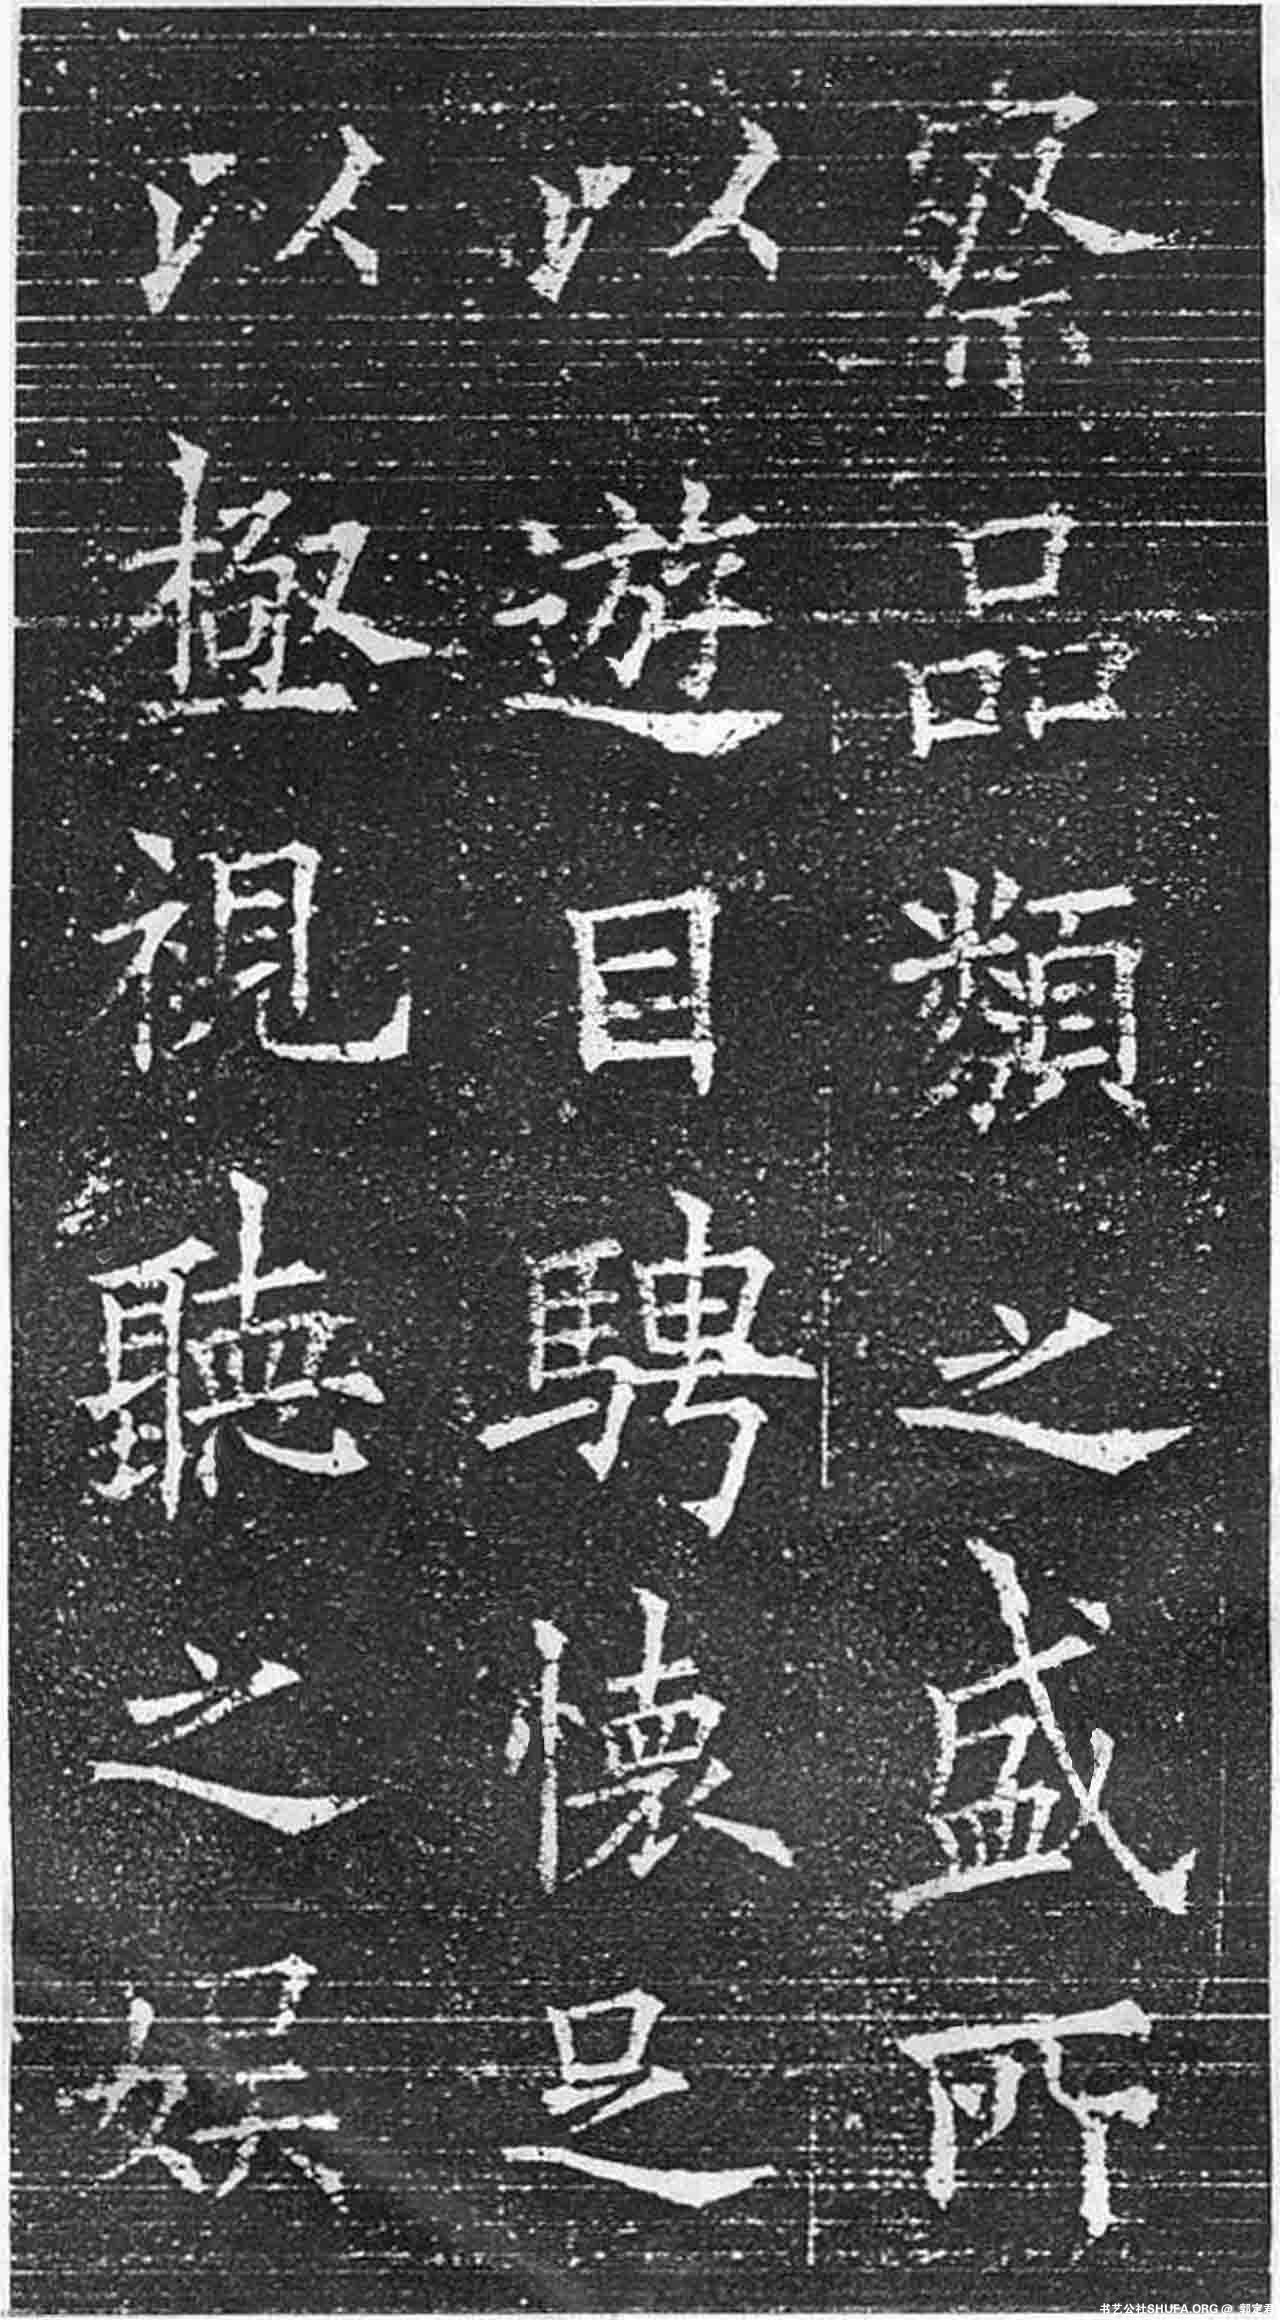 察品類之盛所
以遊目騁懷足
以極視聽之娛
书艺公社SHUFA.ORG @